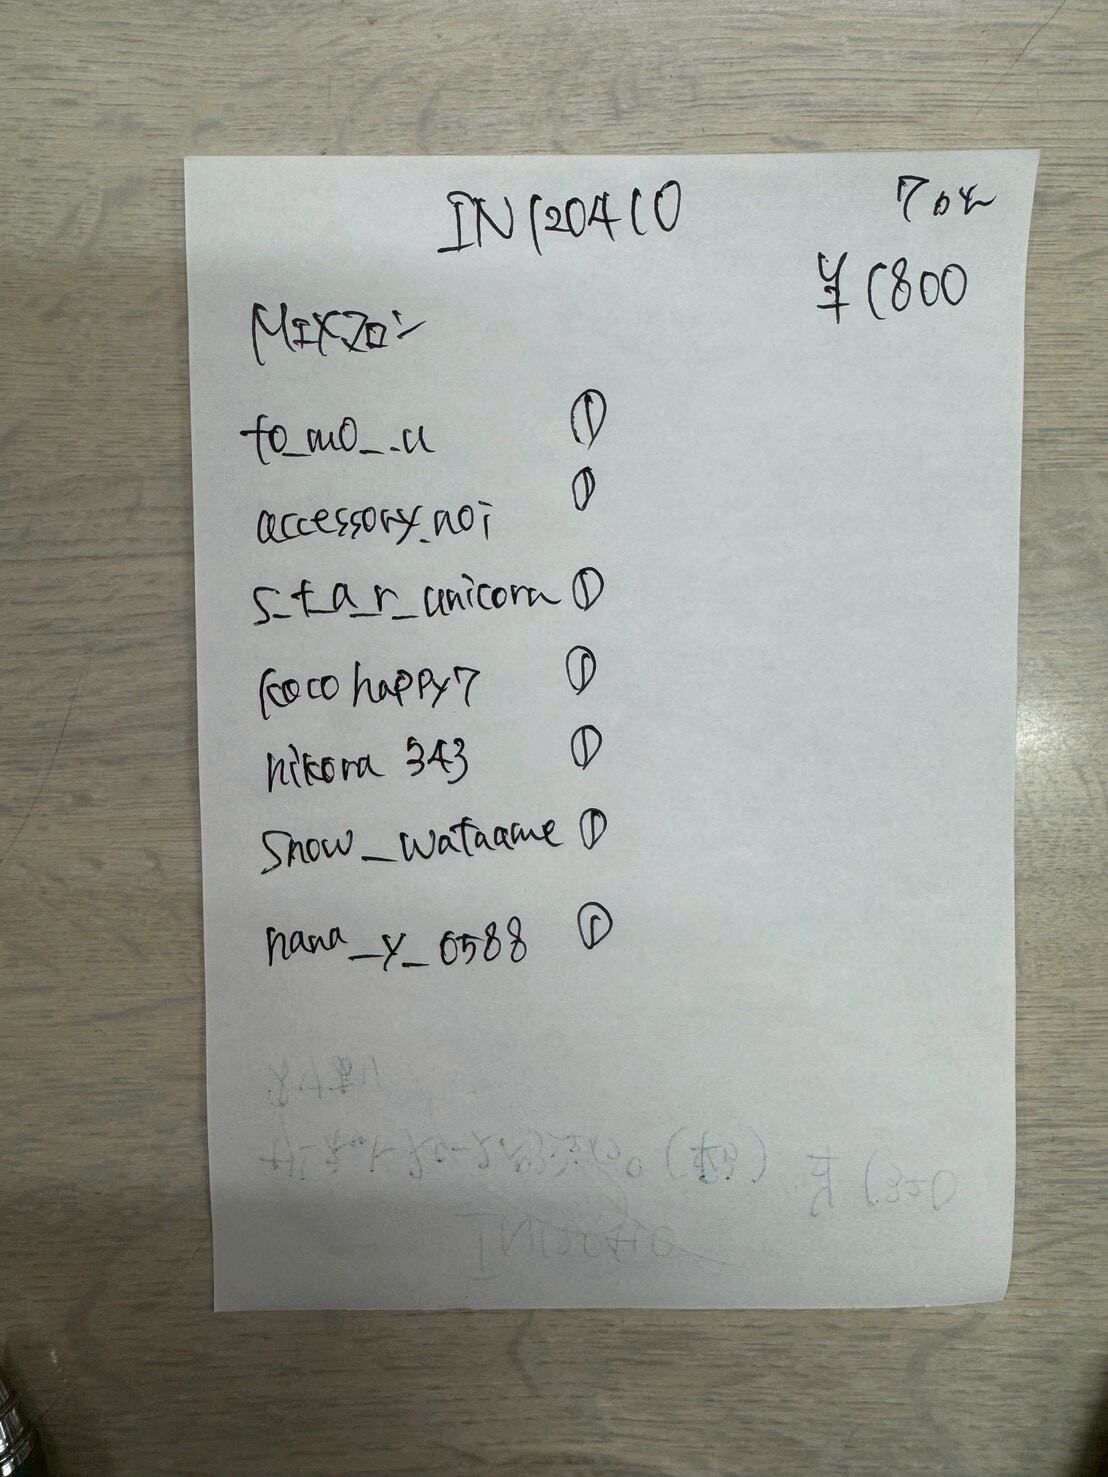 IN120410
¥1800
to_mo_._u
accessory.noi
s_t_a_r_unicorn ①
①
①
cocohappy7 ①
nikora343 ①
snow_wataame ①
nana_y_0588 ①